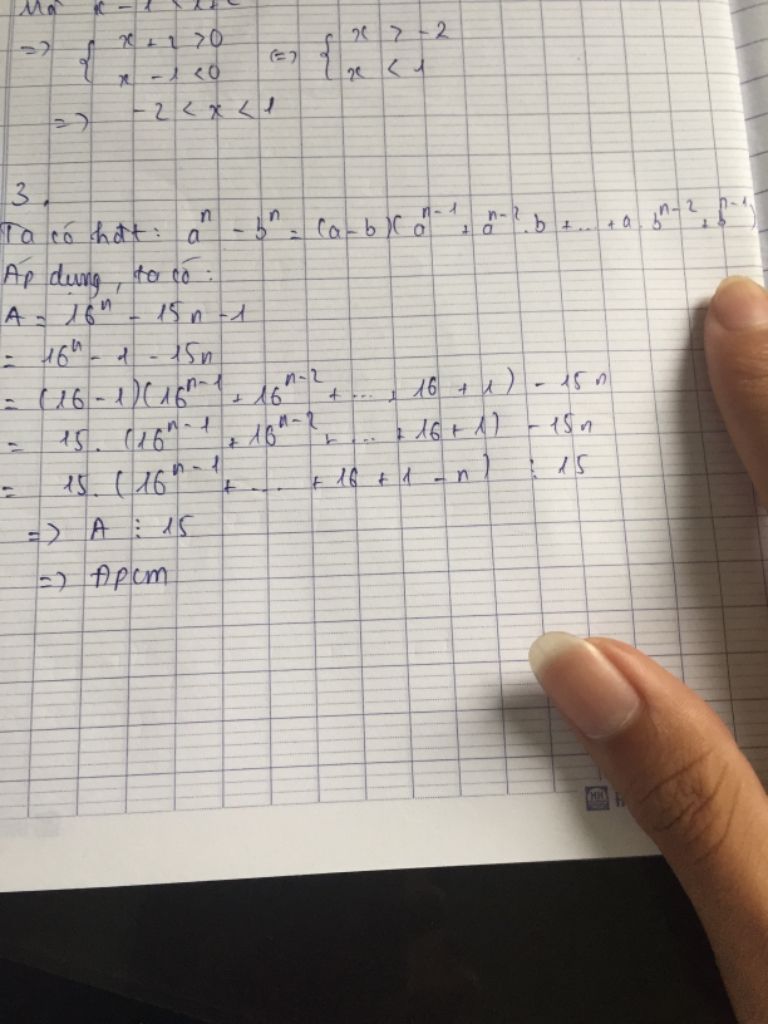 x - 1 <
=> { x + 2 > 0 <=> { x > -2
x - 1 < 0 x < 1
=> -2 < x < 1
3.
Ta có hđt: a^n - b^n = (a-b)(a^{n-1} + a^{n-2}.b + ... + a.b^{n-2} + b^{n-1})
Áp dụng, ta có:
A = 16^n - 15n - 1
= 16^n - 1 - 15n
= (16-1)(16^{n-1} + 16^{n-2} + ... + 16 + 1) - 15n
= 15.(16^{n-1} + 16^{n-2} + ... + 16 + 1) - 15n
= 15.(16^{n-1} + .... + 16 + 1 - n) ⋮ 15
=> A ⋮ 15
=> Đpcm